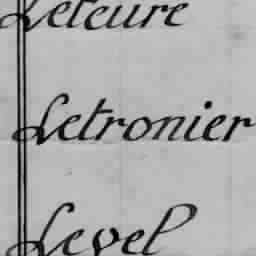 Leteure
Letronier
Level